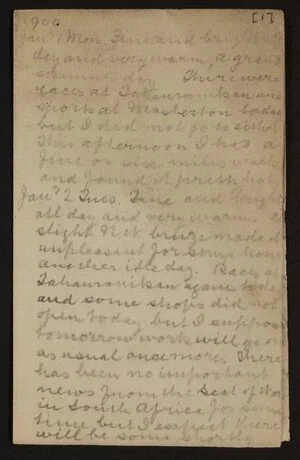 1900 [1]
Jan 1 Mon. Fine and bright all
day and very warm, a grand
summer day. There were
races at Tahuranikau and
sports at Masterton today
but I did not go to either
This afternoon I had a
five or six miles walk
and found it pretty hot
Jan 2 Tues. Fine and bright
all day and very warm. A
slight N.W. breeze made it
unpleasant for some hours
another idle day. Races at
Tahuranikau again today
and some shops did not
open today but I suppose
tomorrow work will go on
as usual once more. There
has been no important
news from the seat of War
in South Africa for some
time but I expect there
will be some shortly